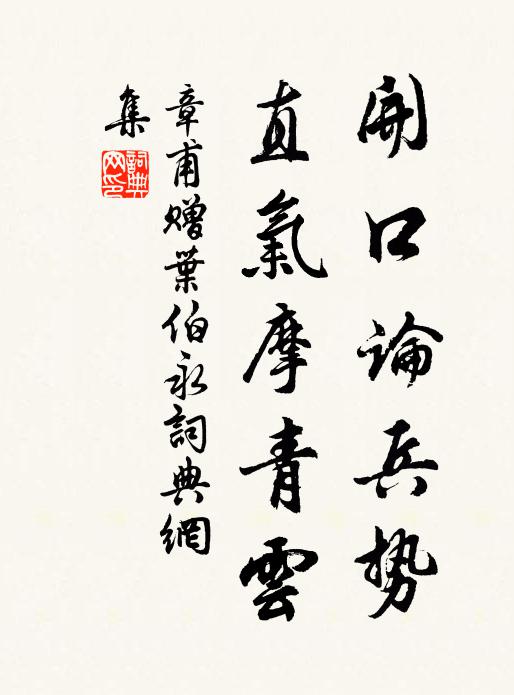 開口論兵勢
直氣摩青雲
章甫贈葉伯永詞典網
集
詞典
网印